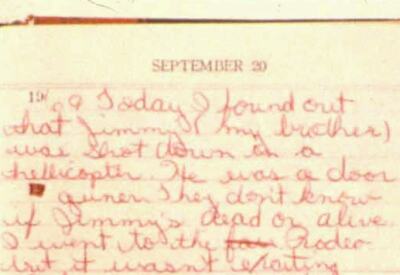 SEPTEMBER 20
19 69 Today I found out
that Jimmy (my brother)
was shot down in a
hellicopter. He was a door
guner. They don't know
if Jimmy's dead or alive.
I went to the Rodeo
but it wasn't exciting